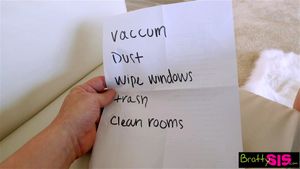 vaccum
Dust
wipe windows
trash
Clean rooms
Bratty
SIS